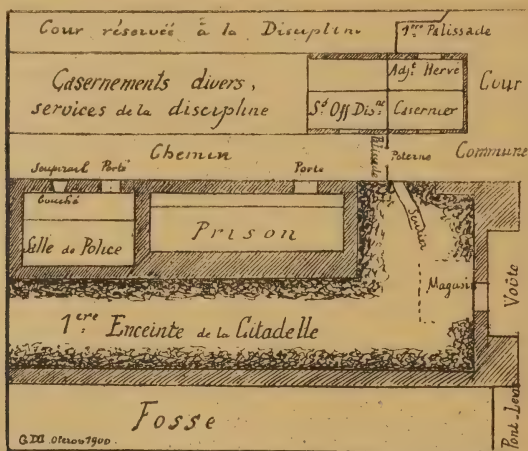 Cour réservée à la Discipline
1ère Palissade
Casernements divers,
services de la discipline
Adjt Hervé
Sd Off Disne
Casernier
Cour
Commune
Chemin
Palissade
Poterne
Soupirail
Porte
Porte
Couche
Salle de Police
Prison
Sentier
Magasin
Voûte
1ere Enceinte de la Citadelle
Fosse
Pont-Levis
Oleron 1900.